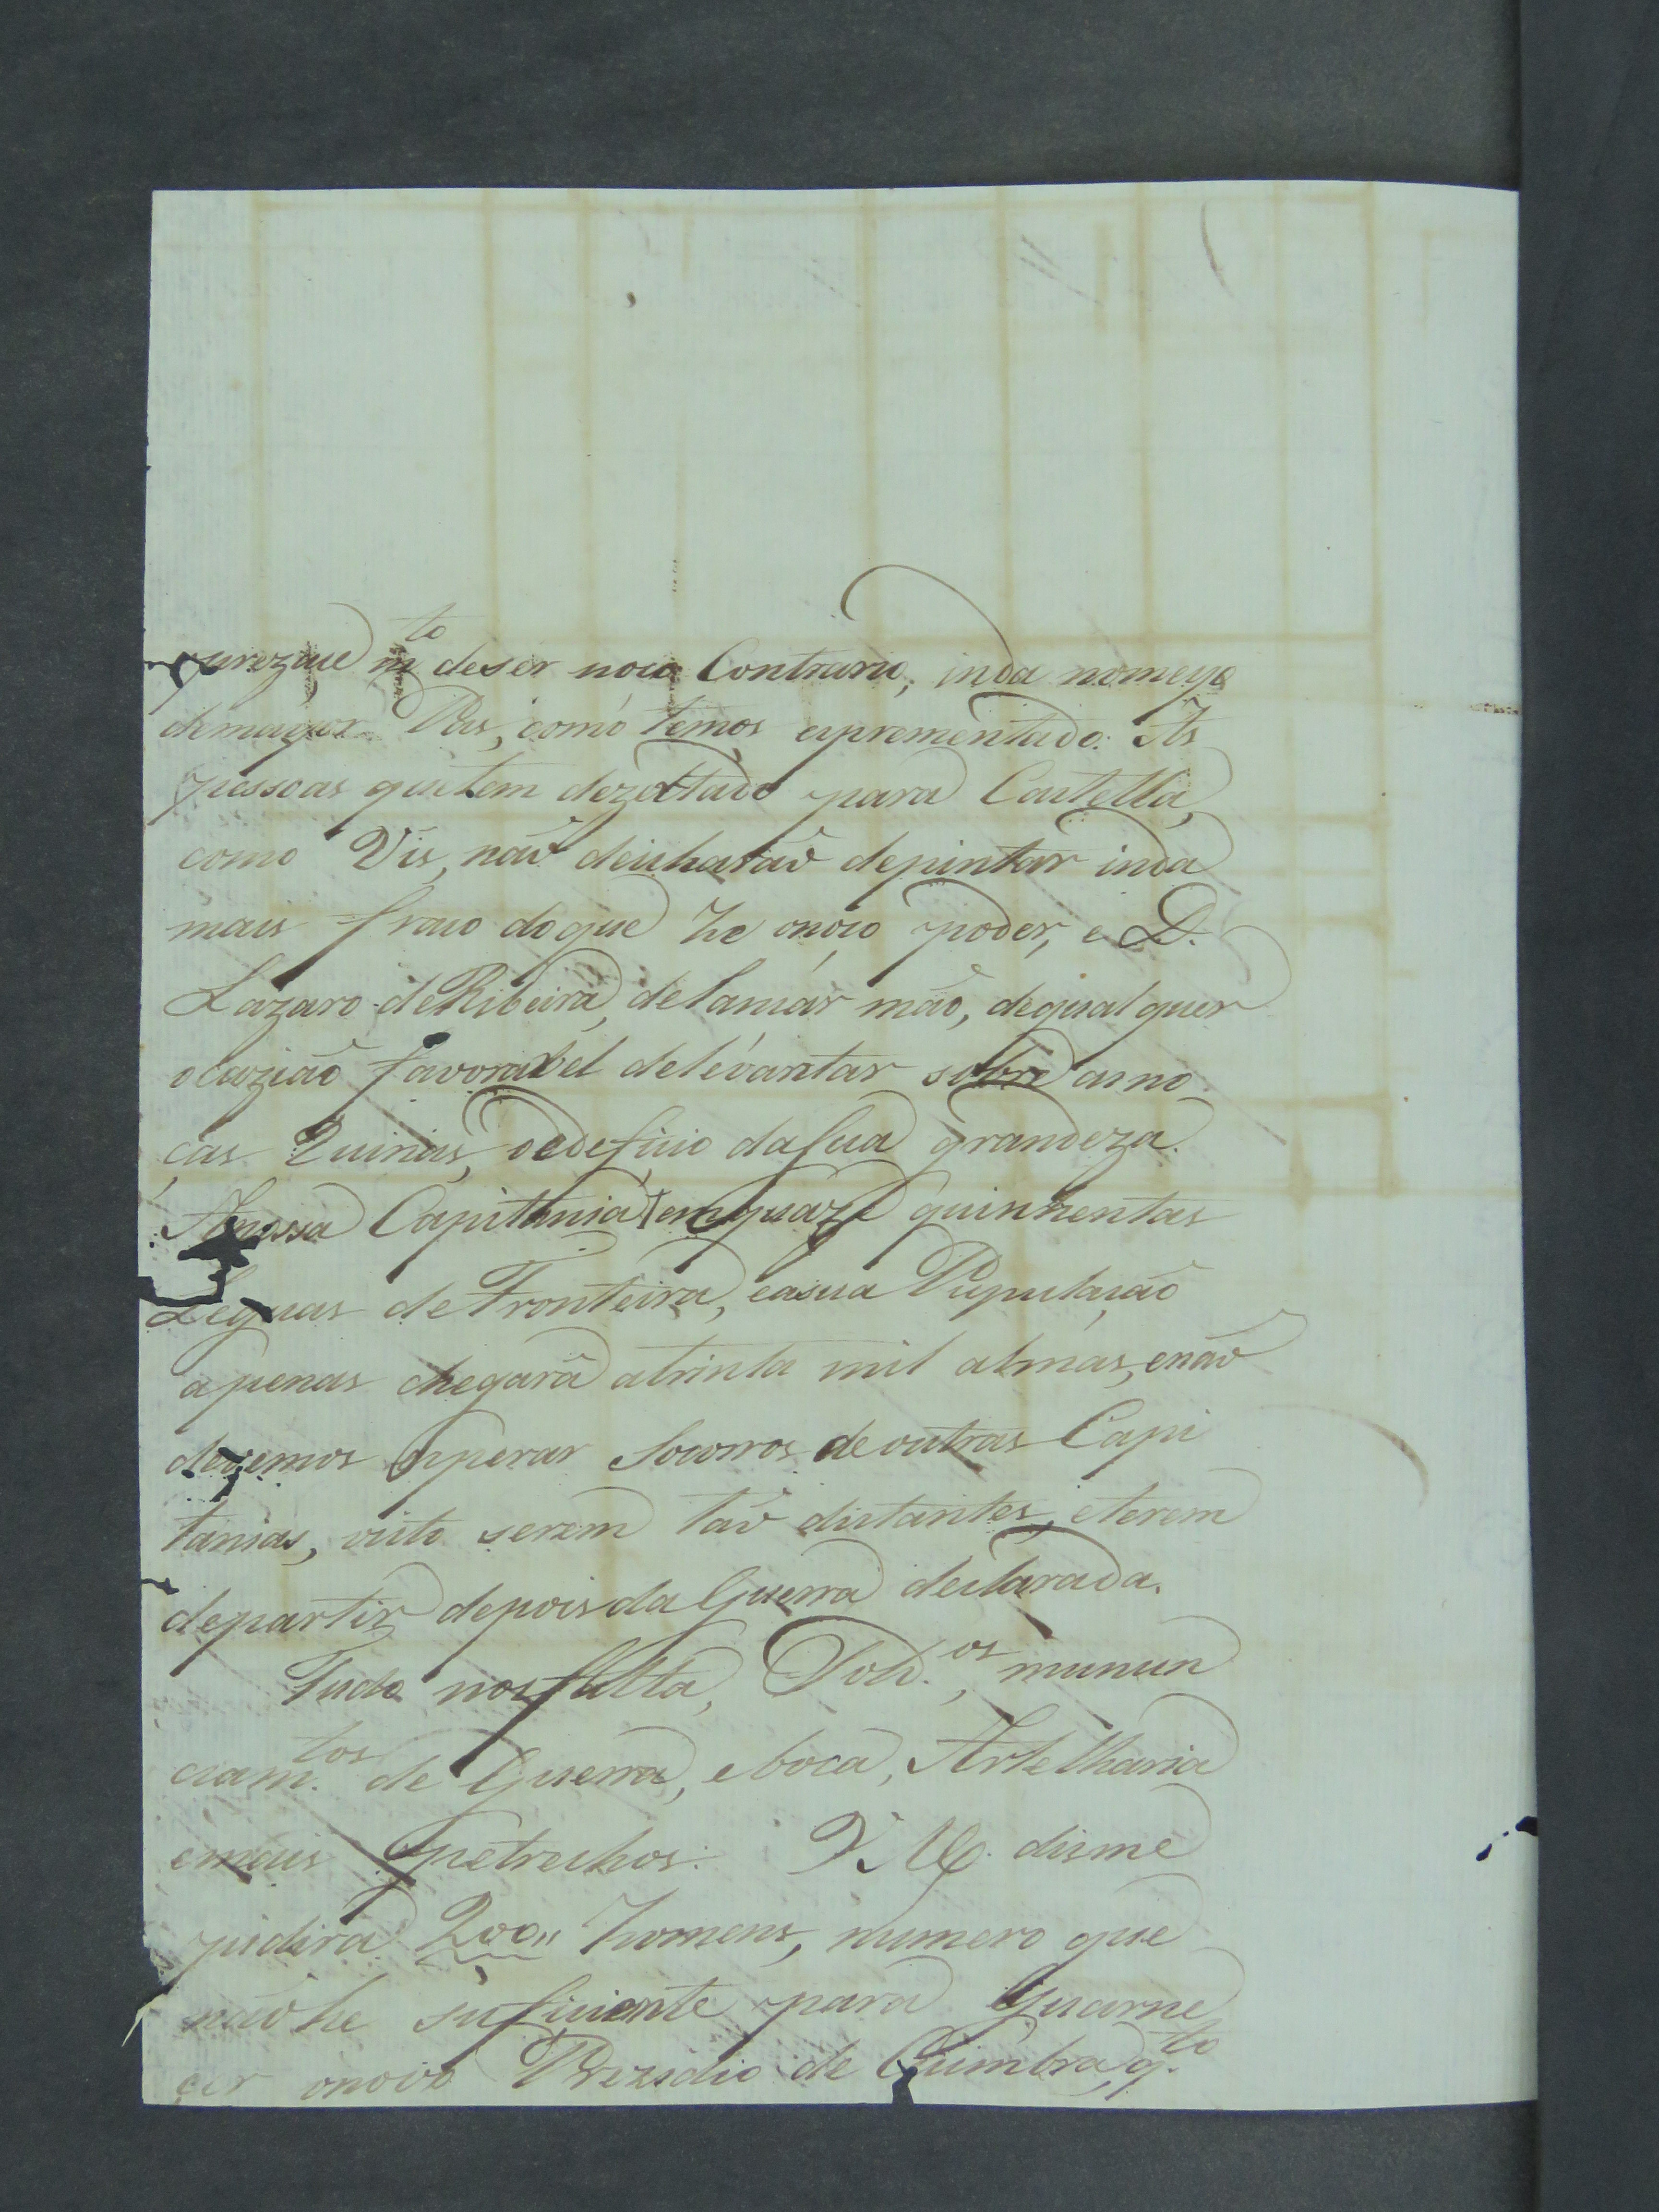 m.to deser noço Contrario, inda nomeyo
demayor Pas, como temos exprementado. As
pessoas quetem dezertado para Castella,
como Vis, naõ deicharaõ depintar inda
mais fraco doque he onoço poder, e D.
Lazaro deRibeira, delansar maõ, dequalquer
ocaziaõ favoravel delevantar sobre as no
ças Quinas, oedeficio dasua grandeza.
Anossa Capitania tem quaze quinhentas
Legoas deFronteira, easua Pupulaçaõ
apenas chegará atrinta mil almas, enaõ
devemos esperar socorros deoutras Capi
tanias, visto serem taõ distantes, eterem
departir depois da Guerra declarada.
Tudo nos falta, Sold.os, munun
ciam.tos de Guerra, eboca, Artelharia
emais petrechos. V. M.ce disme
pedira 200,, homens, numero que
naõ he suficiente para Guarne
cer onovo Prezidio de Cuimbra, q.to